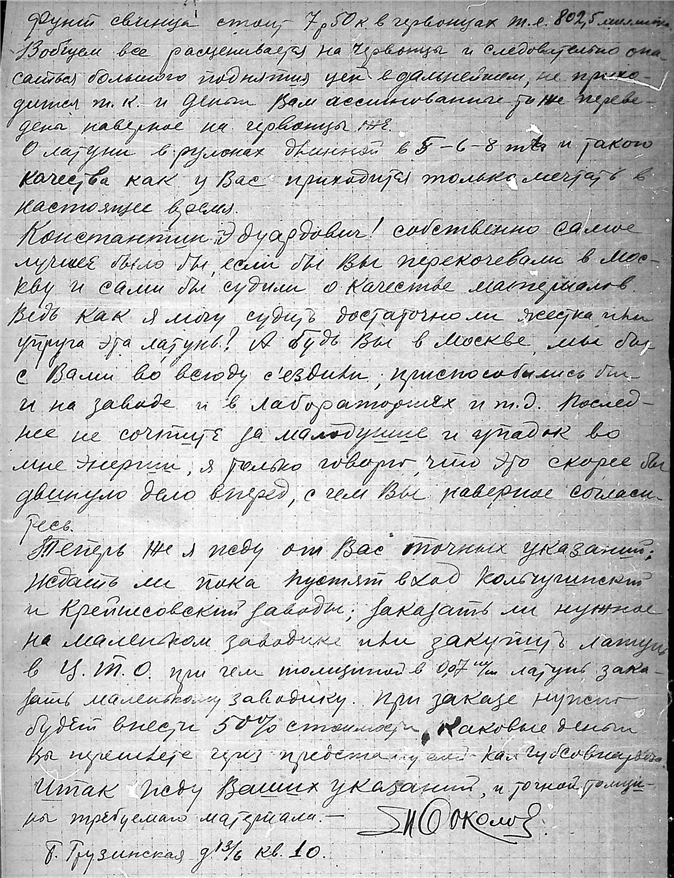 Фунт свинца стоит 7р50к в червонцах т.е. 802,5 миллион
Вообщем все расценивается на червонцы и следовательно опа-
саться большого поднятия цен в дальнейшем, не прихо-
дится т.к. и деньги Вам ассигнованные-то же переве-
дены наверное на червонцы же.
О латуни в рулонах длинной в 5-6-8 mtr и такого
качества как у Вас приходится только мечтать в
настоящее время.
Константин Эдуардович! собственно самое
лучшее было бы, если бы Вы перекочевали в Мос-
кву и сами бы судили о качестве материалов.
Ведь как я могу судить достаточно ли жестка или
упруга эта латунь? А будь Вы в Москве, мы бы
с Вами во всюду с'ездили, приспособились бы
и на заводе и в лабораториях и т.д. Послед-
нее не сочтите за малодушие и упадок во
мне энергии, я только говорю, что это скорее бы
двинуло дело вперед, с чем Вы наверное согласи-
тесь.
Теперь же я жду от Вас точных указаний;
ждать ли пока пустят в ход Кольчугинский
и Крейтсовский заводы; заказать ли нужное
на маленьком заводике или закупить латунь
в Ц.Т.О. при чем толщиной в 0,07 m/m латунь зака-
зать маленькому заводику. При заказе нужно
будет внести 50% стоимости, каковые деньги
Вы перешлете через Калгубсовнархоза.
Итак жду Ваших указаний, и точной толщи-
ны требуемаго материала.—
Соколов.
Б. Грузинская д 13/6 кв. 10.